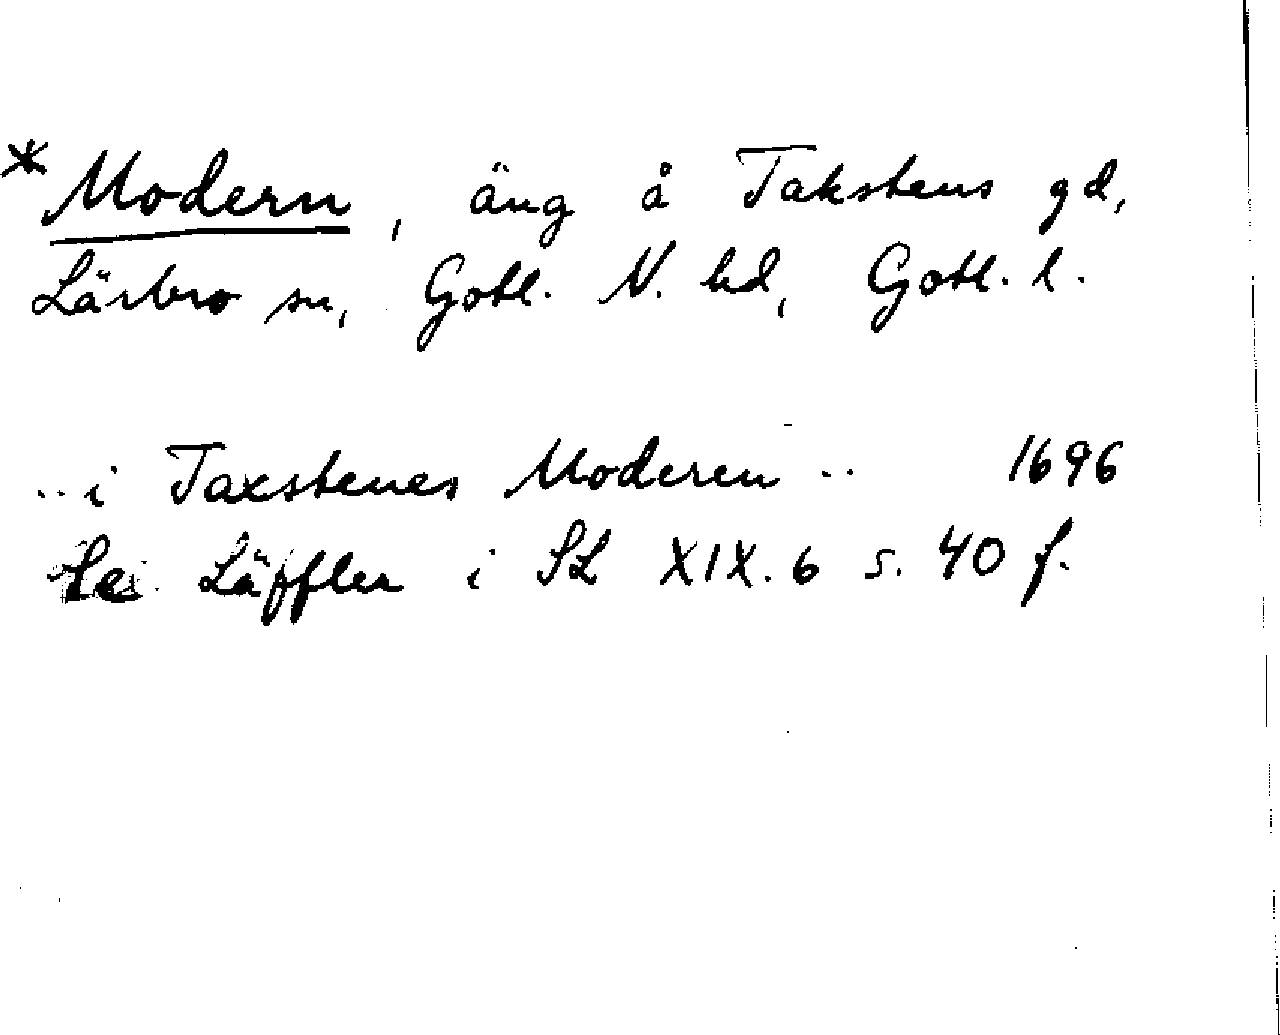 * Modern, äng å Takstens gd,
Lärbro sn, Gotl. N. hd, Gotl. l.
.. i Taxstenes Moderen .. 1696
Läffler i SL XIX. 6 s. 40 f.